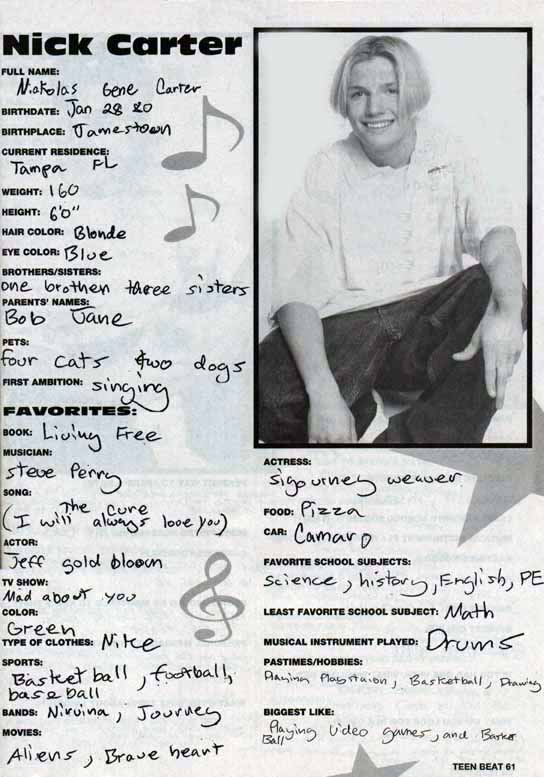 Nick Carter
FULL NAME:
Nickolas Gene Carter
BIRTHDATE: Jan 28 80
BIRTHPLACE: Jamestown
CURRENT RESIDENCE:
Tampa FL
WEIGHT: 160
HEIGHT: 6'0"
HAIR COLOR: Blonde
EYE COLOR: Blue
BROTHERS/SISTERS:
one brother three sisters
PARENTS' NAMES:
Bob Jane
PETS:
four cats two dogs
FIRST AMBITION: singing
FAVORITES:
BOOK: Living Free
MUSICIAN:
steve Perry
SONG:
The Cure
(I will always love you)
ACTOR:
Jeff gold bloom
TV SHOW:
Mad about you
COLOR:
Green
TYPE OF CLOTHES: Nike
SPORTS:
Basket ball, football,
baseball
BANDS: Nirvina, Journey
MOVIES:
Aliens, Brave heart
ACTRESS:
sigourney weaver
FOOD: Pizza
CAR: Camaro
FAVORITE SCHOOL SUBJECTS:
science, history, English, PE
LEAST FAVORITE SCHOOL SUBJECT: Math
MUSICAL INSTRUMENT PLAYED: Drums
PASTIMES/HOBBIES:
Playing Playstaion, Basketball, Drawing
BIGGEST LIKE:
Playing video games, and Basket
Ball
TEEN BEAT 61